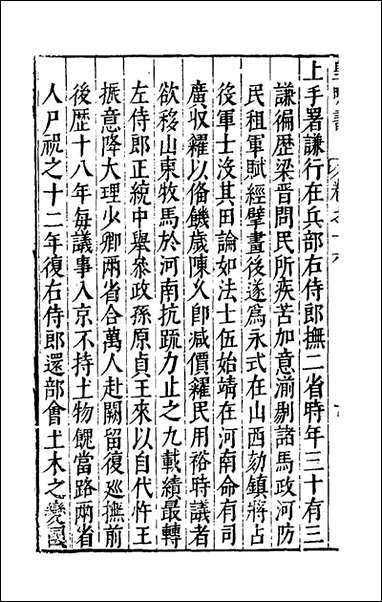 上手署謙行在兵部右侍郎撫二省時年三十有三
謙徧歴梁晉問民所疾苦加意湔剔諸馬政河防
民租軍賦經擘畫後遂爲永式在山西劾鎮將占
後軍士沒其田論如法士伍始靖在河南命有司
廣収糴以俻饑歲陳乂即減價糶民用裕時議者
欲移山東牧馬於河南抗疏力止之九載績最轉
左侍郎正統中舉叅政孫原貞王來以自代忤王
振意降大理少卿兩省合萬人赴闕留復廵撫前
後歴十八年每議事入京不持土物餽當路兩省
人尸祝之十二年復右侍郎還部會土木之變國